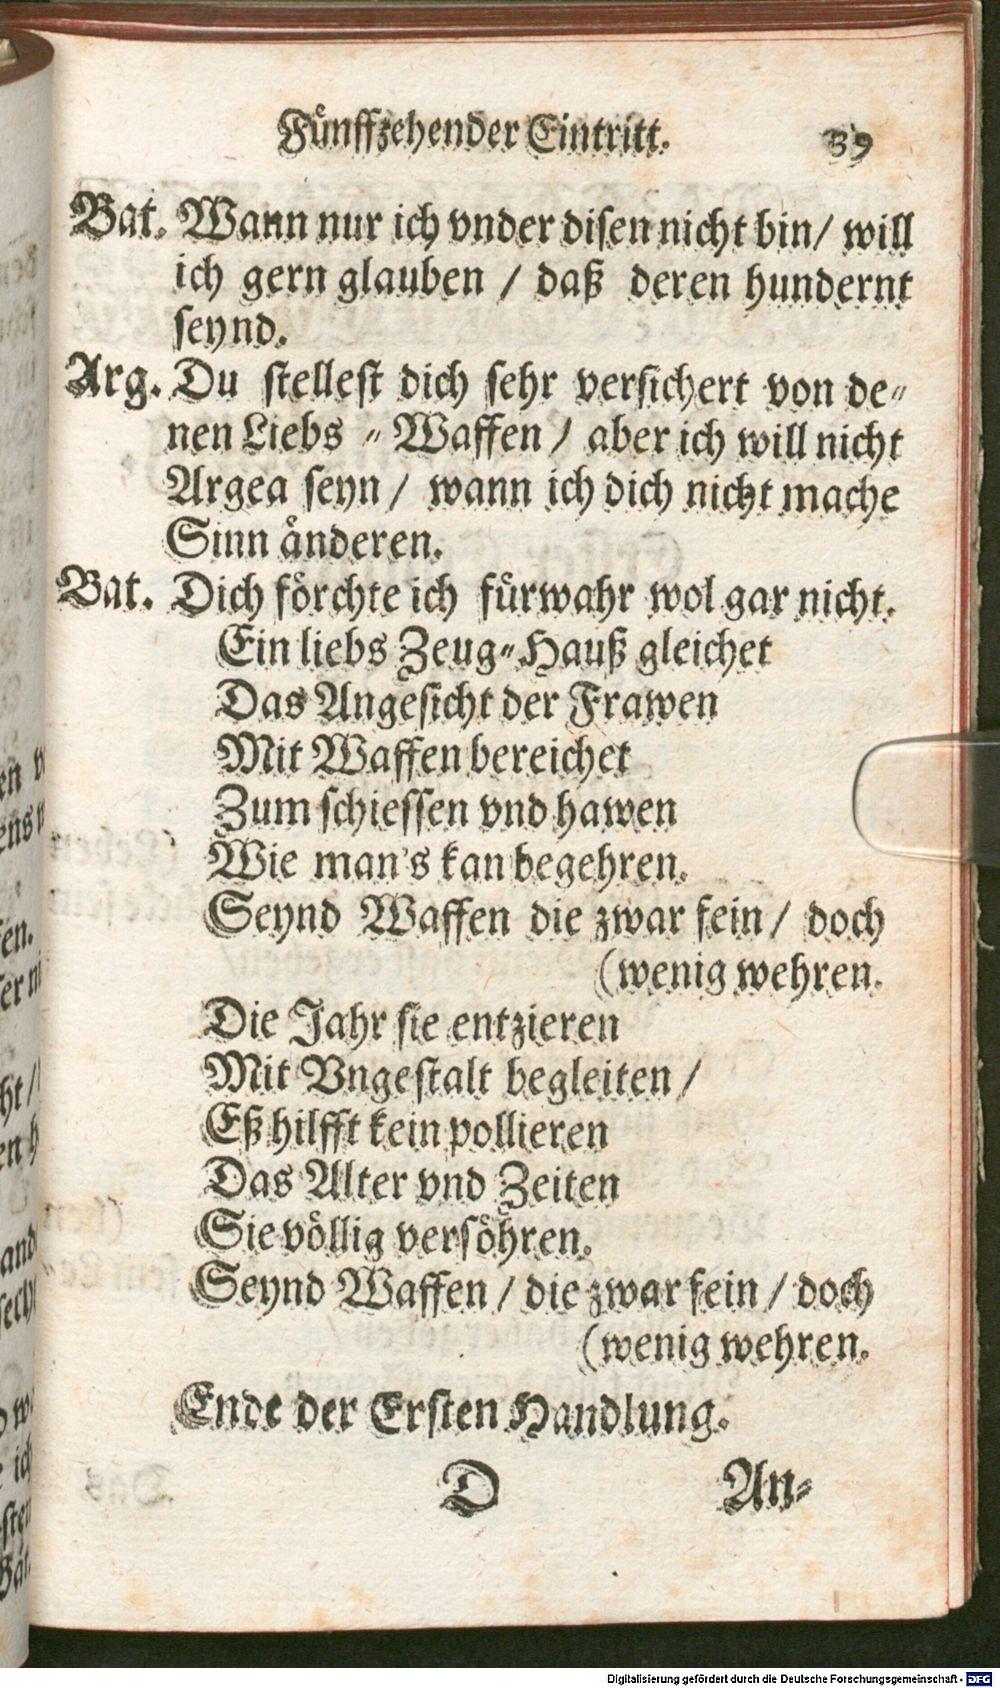 Fünffzehender Eintritt. 39
Bat. Wann nur ich vnder disen nicht bin/ will
ich gern glauben / daß deren hundernt
seynd.
Arg. Du stellest dich sehr versichert von de-
nen Liebs - Waffen / aber ich will nicht
Argea seyn / wann ich dich nicht mache
Sinn änderen.
Bat. Dich förchte ich fürwahr wol gar nicht.
Ein liebs Zeug-Hauß gleichet
Das Angesicht der Frawen
Mit Waffen bereichet
Zum schiessen vnd hawen
Wie man's kan begehren.
Seynd Waffen die zwar fein / doch
(wenig wehren.
Die Jahr sie entzieren
Mit Vngestalt begleiten /
Eß hilfft kein pollieren
Das Alter vnd Zeiten
Sie völlig versöhren.
Seynd Waffen / die zwar fein / doch
(wenig wehren.
Ende der Ersten Handlung.
D An-
Digitalisierung gefördert durch die Deutsche Forschungsgemeinschaft - DFG